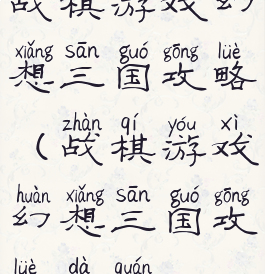 战棋游戏幻
xiǎng sān guó gōng lüè
想三国攻略
zhàn qí yóu xì
(战棋游戏
huàn xiǎng sān guó gōng
幻想三国攻
lüè dà quán